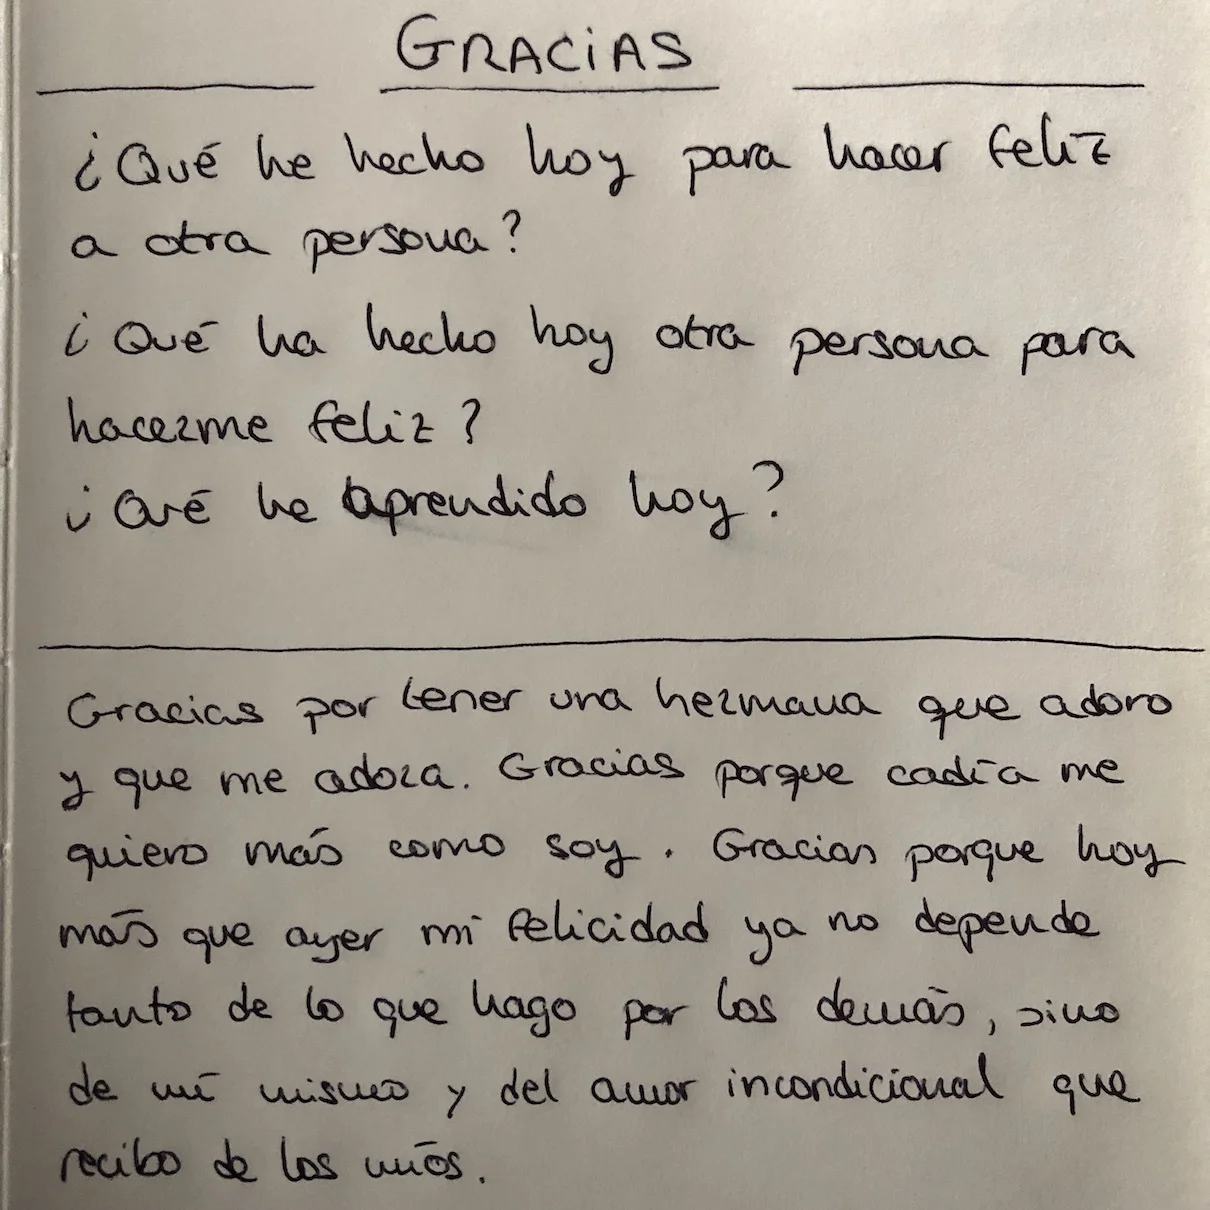 GRACIAS
¿Qué he hecho hoy para hacer feliz
a otra persona?
¿Qué ha hecho hoy otra persona para
hacerme feliz?
¿Qué he aprendido hoy?
Gracias por tener una hermana que adoro
y que me adora. Gracias porque cadía me
quiero más como soy. Gracias porque hoy
más que ayer mi felicidad ya no depende
tanto de lo que hago por los demás, sino
de mí mismo y del amor incondicional que
recibo de los míos.